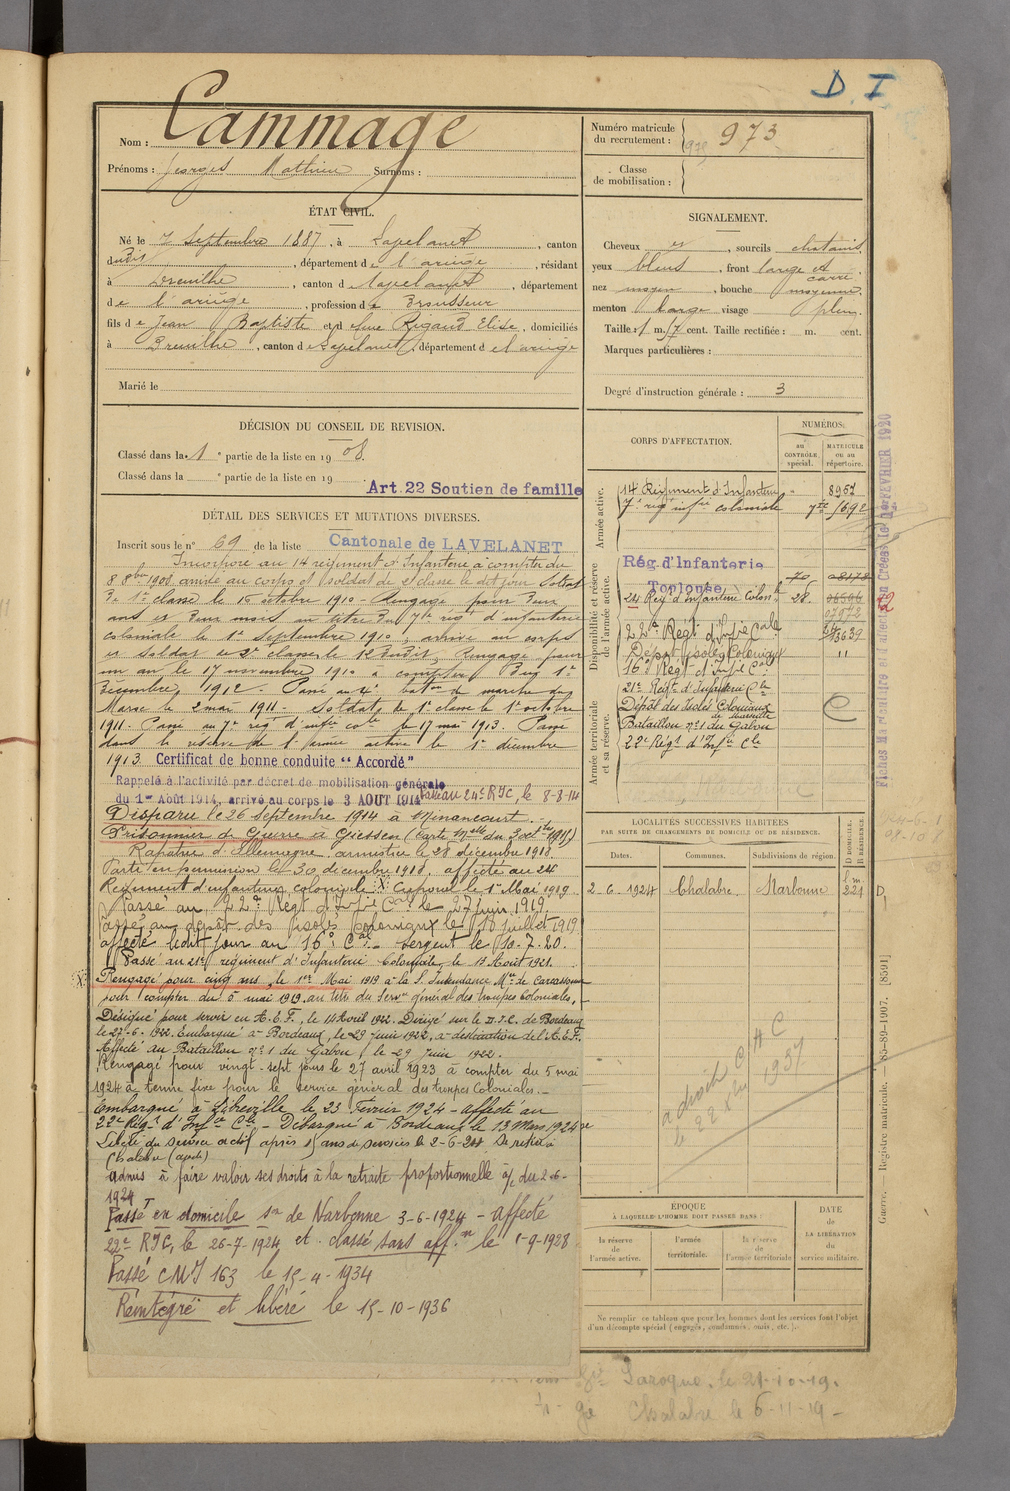 D. I
Nom : Cammage
Prénoms : Georges Mathieu Surnoms :
Numéro matricule du recrutement : 973
Classe de mobilisation :
ÉTAT CIVIL.
Né le 7 Septembre 1887, à Lavelanet, canton
dudit, département de l'ariège, résidant
à Dreuilhe, canton de Lavelanet, département
de l'ariège, profession de Brousseur
fils de Jean Baptiste et de feue Rigaud Elise, domiciliés
à Dreuilhe, canton de Lavelanet, département de l'ariège
Marié le
SIGNALEMENT.
Cheveux et, sourcils chatains
yeux bleus, front large et carré
nez moyen, bouche moyenne
menton large visage plein
Taille : 1 m. 7 cent. Taille rectifiée : m. cent.
Marques particulières :
Degré d'instruction générale : 3
DÉCISION DU CONSEIL DE REVISION.
Classé dans la 1e partie de la liste en 1908.
Classé dans la e partie de la liste en 19
Art. 22 Soutien de famille
DÉTAIL DES SERVICES ET MUTATIONS DIVERSES.
Inscrit sous le n° 69 de la liste Cantonale de LAVELANET
Incorporé au 14 régiment d'Infanterie à compter du
8 8bre 1908, arrivé au corps et soldat de 2e classe le dit jour. Soldat
de 1re classe le 10 octobre 1910 - Rengagé pour deux
ans et deux mois au titre du 7e rég d'infanterie
coloniale le 1er Septembre 1910, arrivé au corps
et soldat de 2e classe le 12 dudit, Rengagé pour
un an le 17 novembre 1910 à compter du 1er
Décembre 1912 - Passé au 4e baton de marche du
Maroc le 2 mai 1911 - Soldat de 1e classe le 1er octobre
1911 - Passé au 7e rég d'infie cole le 17 mai 1913. Passé
dans la réserve de l'armée active le 1er décembre
1913. Certificat de bonne conduite "Accordé"
Rappelé à l'activité par décret de mobilisation générale
du 1er Août 1914, arrivé au corps le 3 AOUT 1914 Passé au 24e RIC, le 8-8-14
Disparu le 26 Septembre 1914 à Minaucourt.
Prisonnier de Guerre à Giessen (Carte Mlle du 3 octbre 1915)
Rapatrié d'Allemagne, armistice le 28 décembre 1918
Parti en permission le 30 décembre 1918. affecté au 24
Régiment d'infanterie coloniale X Caporal le 1er Mai 1919
Passé au 22e Regt d'Infie Cale le 27 juin 1919.
Passé au dépôt des isolés coloniaux le 18 juillet 1919
affecté ledit jour au 16e Cal - Sergent le 10-7-20.
Passé au 21e régiment d'Infanterie Coloniale, le 13 Août 1921.
X Rengagé pour cinq ans, le 1er Mai 1919 à la S. Intendance Mre de Carcassonne
pour compter du 5 mai 1919. au titre du Servce général des troupes Coloniales,
Désigné pour servir en A.E.F., le 14 Avril 1922. Dirigé sur le D.I.C. de Bordeaux
le 27-6-1922. Embarqué à Bordeaux, le 29 Juin 1922, à destination de l'A.E.F.
Affecté au Bataillon N°1 du Gabon, le 29 Juin 1922.
Rengagé pour vingt-sept jours le 27 avril 1923 à compter du 5 mai
1924 à terme fixe pour le service général des troupes Coloniales.
Embarqué à Libreville le 23 Février 1924 - affecté au
22e Régt d'Infie Cle - Débarqué à Bordeaux le 13 Mars 1924
Libéré du service actif après 15 ans de services le 2-6-24 Se retire à
Chalabre (Aude)
admis à faire valoir ses droits à la retraite proportionnelle à/c du 2-6-
1924
Passé en domicile son de Narbonne 3-6-1924 - affecté
22e RIC, le 26-7-1924 et classé sans affon le 1-9-1928
Passé CMI 163 le 15-4-1934
Réintégré et libéré le 15-10-1936
CORPS D'AFFECTATION.
NUMÉROS:
au CONTRÔLE spécial.
MATRICULE ou au répertoire.
Armée active.
14e Régiment d'Infanterie 8967
7e rég infie coloniale 1692
Disponibilité et réserve de l'armée active.
Rég. d'Infanterie
Toulouse
24 Rég d'Infanterie Colon. 28.
22e Regt d'Infie Cale 3639
Dépôt isolés Coloniaux
16e Regt d'Infie Cal
Armée territoriale et sa réserve.
21e Régt d'Infanterie Cle
Dépôt des Isolés Coloniaux de Marseille
Bataillon n°1 du Gabon
22e Régt d'Infie Cle
LOCALITÉS SUCCESSIVES HABITÉES
PAR SUITE DE CHANGEMENTS DE DOMICILE OU DE RÉSIDENCE.
Dates. Communes. Subdivisions de région. D DOMICILE. R RÉSIDENCE.
2.6.1924 Chalabre. Narbonne D.
a droit C/HC
le 22 Xbre 1937
ÉPOQUE
À LAQUELLE L'HOMME DOIT PASSER DANS :
la réserve de l'armée active.
l'armée territoriale.
la réserve de l'armée territoriale
DATE DE LA LIBÉRATION du service militaire.
Ne remplir ce tableau que pour les hommes dont les services font l'objet
d'un décompte spécial (engagés, condamnés, omis, etc.).
Guerre. — Registre matricule. — 85-89-1907. [8591]
Laroque. le 21-10-19.
Chalabre le 6-11-19 -